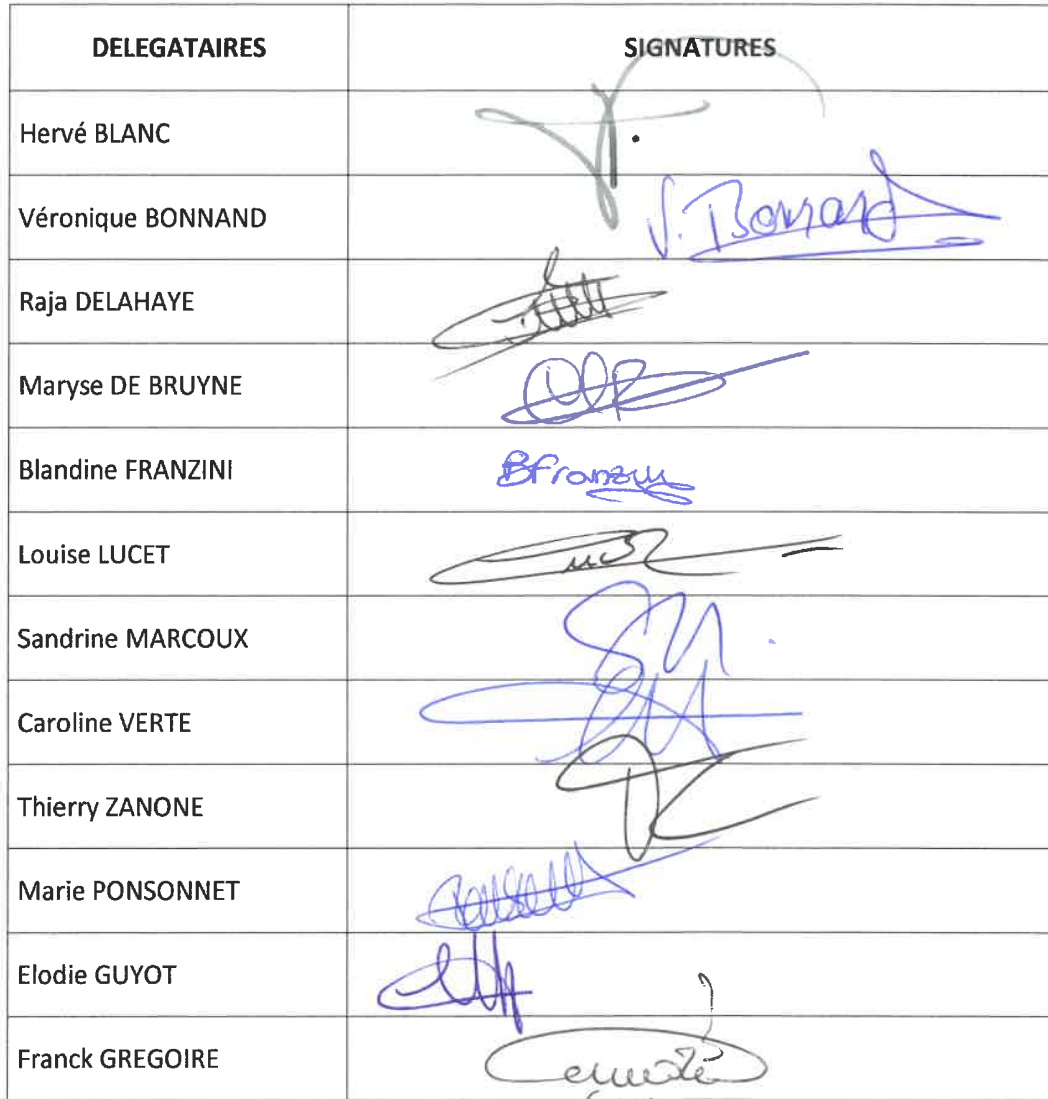 DELEGATAIRES SIGNATURES
Hervé BLANC
Véronique BONNAND V. Bonnand
Raja DELAHAYE
Maryse DE BRUYNE
Blandine FRANZINI BFranzini
Louise LUCET
Sandrine MARCOUX SM
Caroline VERTE
Thierry ZANONE
Marie PONSONNET
Elodie GUYOT
Franck GREGOIRE